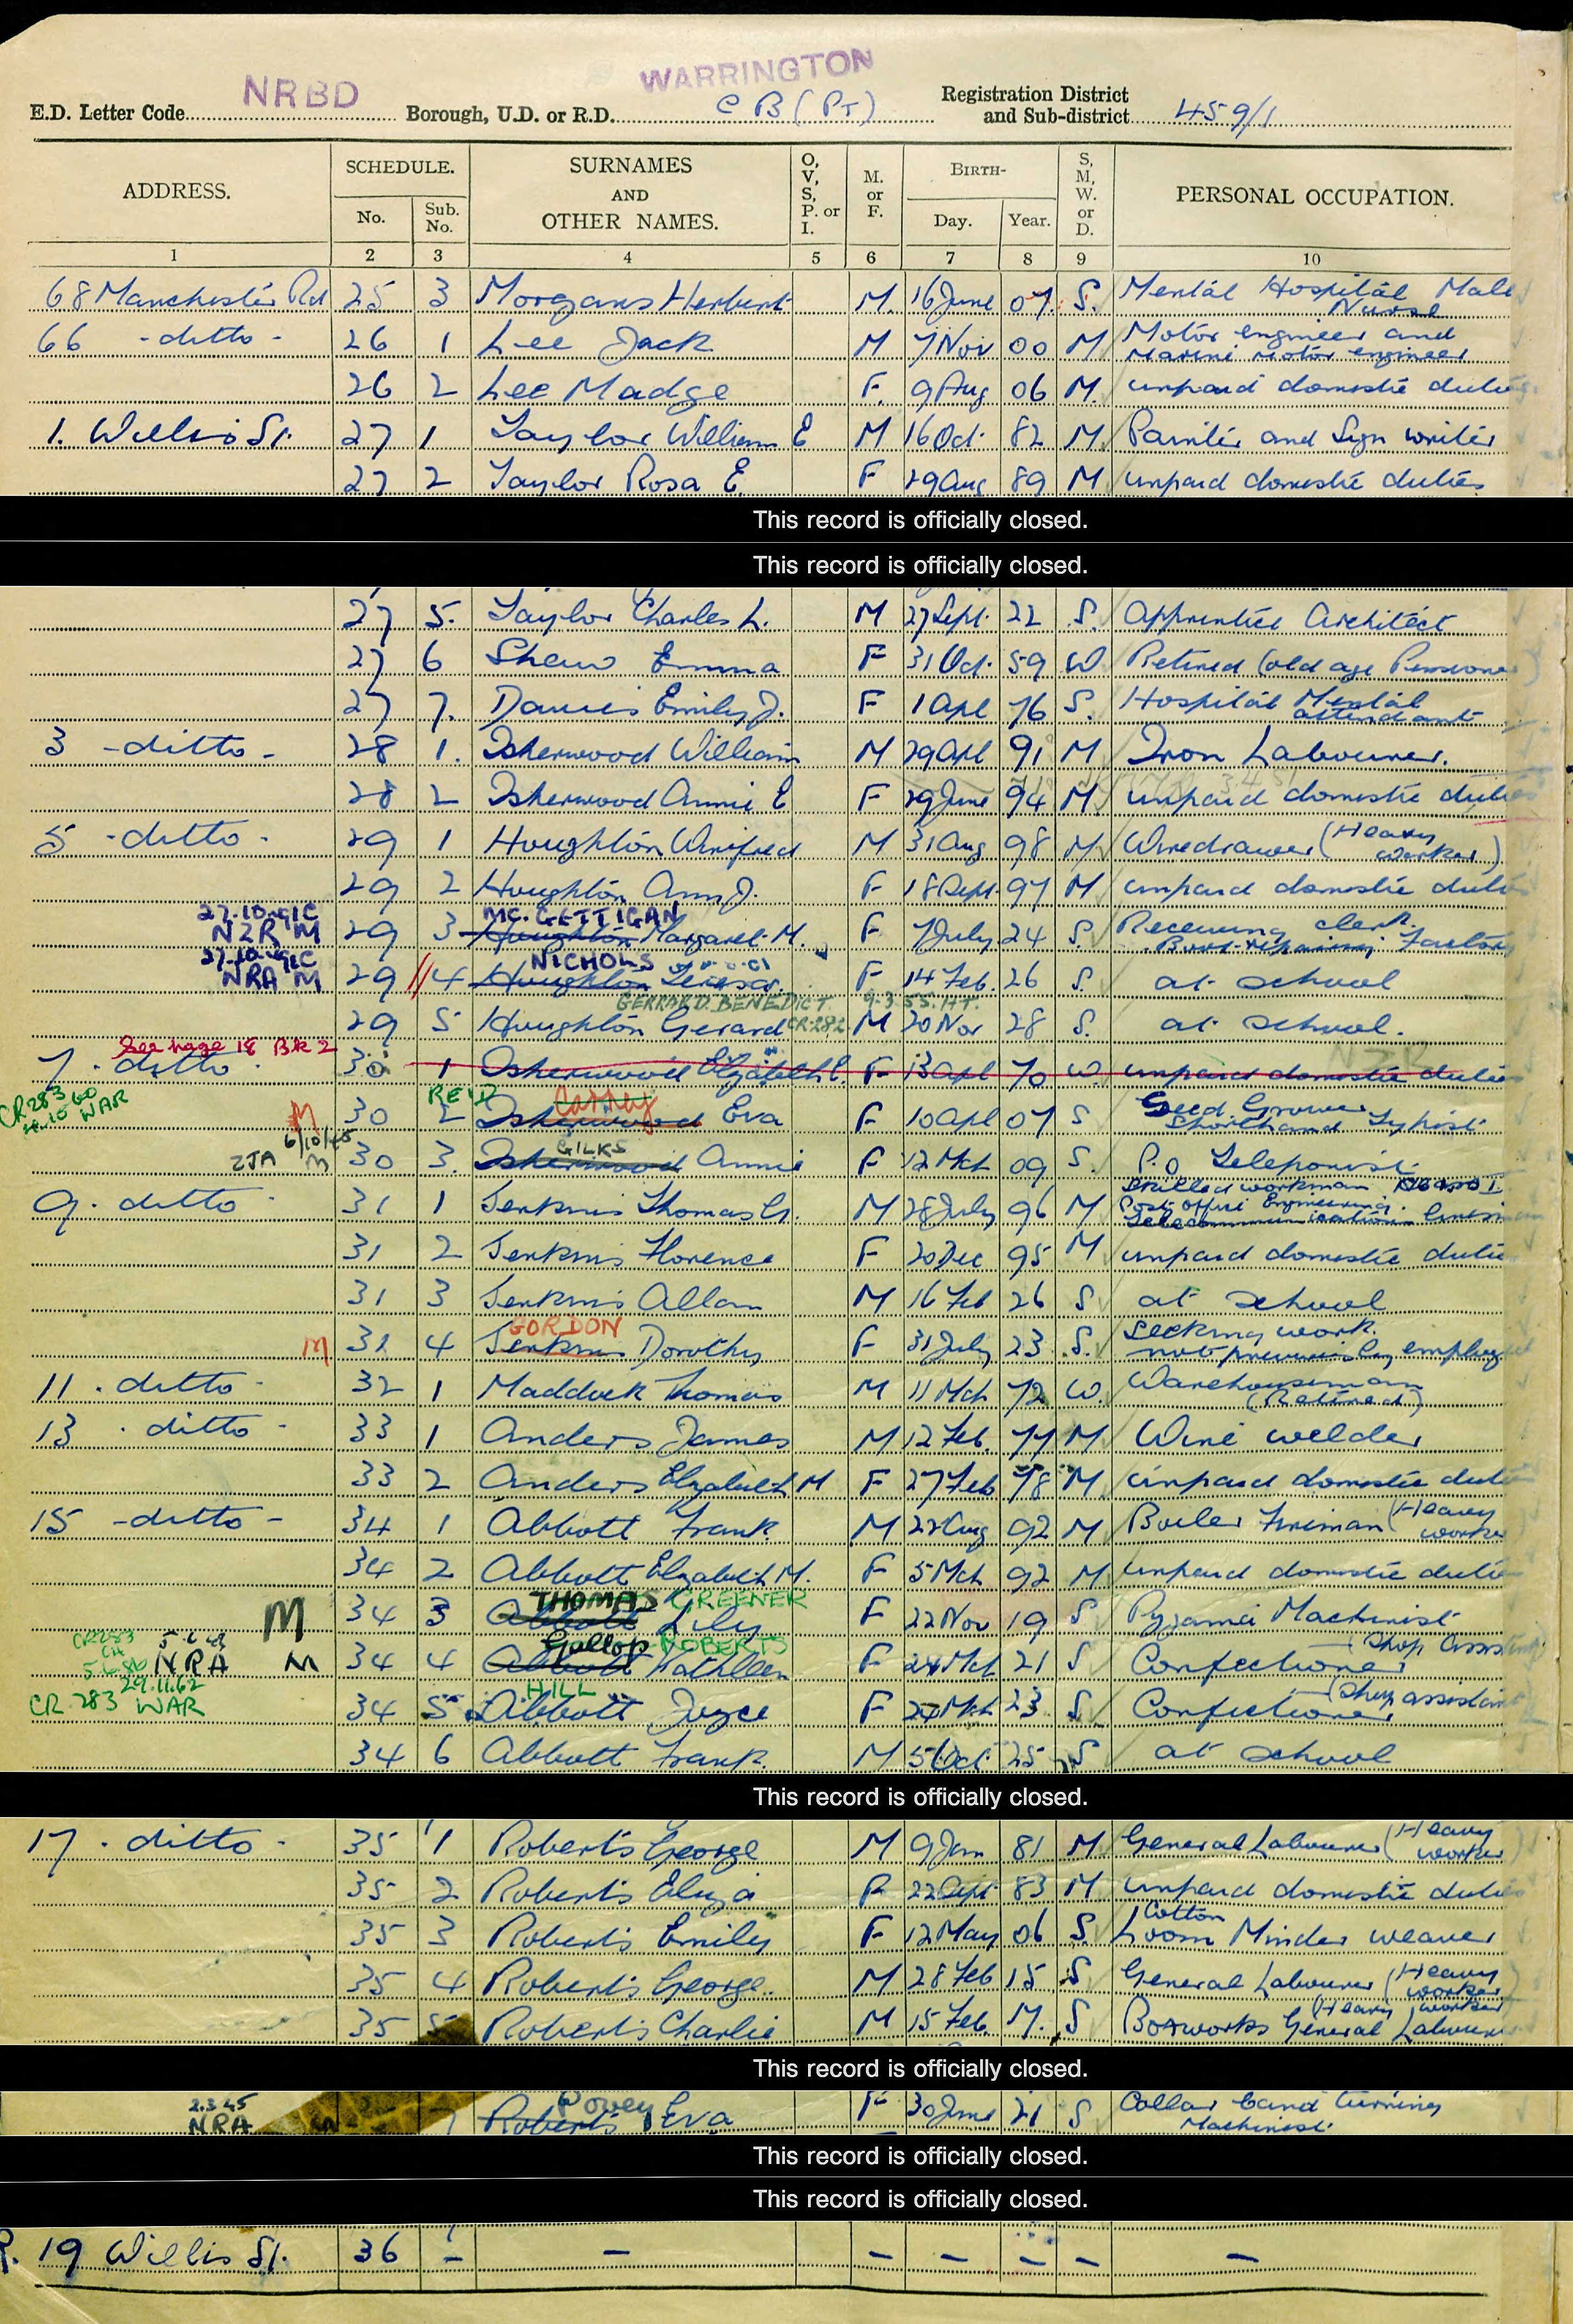 NRBD
WARRINGTON
E.D. Letter Code Borough, U.D. or R.D. C B (PT) Registration District and Sub-district 459/1
ADDRESS. SCHEDULE. No. Sub. No. SURNAMES AND OTHER NAMES. O, V, S, P. or I. M. or F. BIRTH- Day. Year. S, M, W. or D. PERSONAL OCCUPATION.
1 2 3 4 5 6 7 8 9 10
68 Manchester Rd 25 3 Morgans Herbert M. 16 June 07. S. Mental Hospital Male Nurse
66 -ditto- 26 1 Lee Jack M 7 Nov 00 M Motor engineer and Marine motor engineer
26 2 Lee Madge F. 9 Aug 06 M. unpaid domestic duties
1. Willis St. 27 1 Taylor William E M 16 Oct. 82 M. Painter and Sign writer
27 2 Taylor Rosa E. F 29 Aug 89 M unpaid domestic duties
This record is officially closed.
This record is officially closed.
27 5. Taylor Charles L. M 27 Sept. 22 S. Apprentice Architect
27 6 Shaw Emma F 31 Oct. 59 W. Retired (old age Pensioner
27 7. Davies Emily J. F 1 Apl 76 S. Hospital Mental attendant
3 -ditto- 28 1. Isherwood William M 29 Apl 91 M Iron Labourer.
28 2 Isherwood Annie E F 29 June 94 M. unpaid domestic duties
5 -ditto- 29 1 Houghton Winifred M 31 Aug 98 M Wiredrawer (Heavy worker)
29 2 Houghton Ann J. F 18 Sept. 97 M unpaid domestic duties
MC. GETTIGAN
NZR M 29 3 Houghton Margaret M. F 7 July 24 S. Receiving clerk. Boot repairing Factory
NICHOLS
NRA M 29 4 Houghton Teresa. F 14 Feb. 26 S. at school
GERRARD. BENEDICT 9.3.55. HT.
29 5 Houghton Gerard CR 282 M 20 Nov 28 S. at school.
See page 18 BK 2
7. ditto 30 1 Isherwood Elizabeth E. F 13 Apl 70 W. unpaid domestic duties NZR
CR 283 WAR
REID
M 30 2 Isherwood Eva F 10 Apl 07 S Seed Grower Shorthand Typist
6/10/45
GILKS
ZJA M 30 3. Isherwood Annie F 12 Mch 09 S. P.O Teleponist
9. ditto 31 1 Jenkins Thomas G. M 28 July 96 M Skilled workman Class I Post office Engineering. Telecommunication
31 2 Jenkins Florence F 20 Dec 95 M unpaid domestic duties
31 3 Jenkins Allan M 16 Feb 26 S at school
GORDON
M 31 4 Jenkins Dorothy F 31 July 23 S. Seeking work. not previously employed
11. ditto 32 1 Maddock Thomas M 11 Mch 72 W. Warehouseman (Retired)
13. ditto 33 1 Anders James M 12 Feb. 77 M Wire welder
33 2 Anders Elizabeth M F 27 Feb 78 M. unpaid domestic duties
15 -ditto- 34 1 Abbott Frank M 22 Aug 92 M Boiler Fireman (Heavy worker
34 2 Abbott Elizabeth M. F 5 Mch 92 M unpaid domestic duties
THOMAS GREENER
M 34 3 Abbott Lily F 22 Nov 19 S Pyjama Machinist
Gallop ROBERTS
CR283 NRA M 34 4 Abbott Kathleen F 24 Mch 21 S Confectioner (Shop Assistant)
29.11.62
HILL
CR. 283 WAR 34 5 Abbott Joyce F 24 Mch 23 S Confectioner (Shop assistant
34 6 Abbott Frank. M 5 Oct. 25 S at school
This record is officially closed.
17. ditto 35 1 Roberts George M 9 Jan 81 M General Labourer (Heavy worker)
35 2 Roberts Eliza F 22 Sept 83 M unpaid domestic duties
35 3 Roberts Emily F 12 May 06 S. Cotton Loom Minder weaver
35 4 Roberts George. M 28 Feb 15 S General Labourer (Heavy worker)
35 5 Roberts Charlie M 15 Feb. 17. S Boxworks General Labourer (Heavy worker
This record is officially closed.
2.3.45
Povey
NRA 7 Roberts Eva F 30 June 21 S Collar band turning Machinist
This record is officially closed.
This record is officially closed.
19 Willis St. 36 - - - - - - -